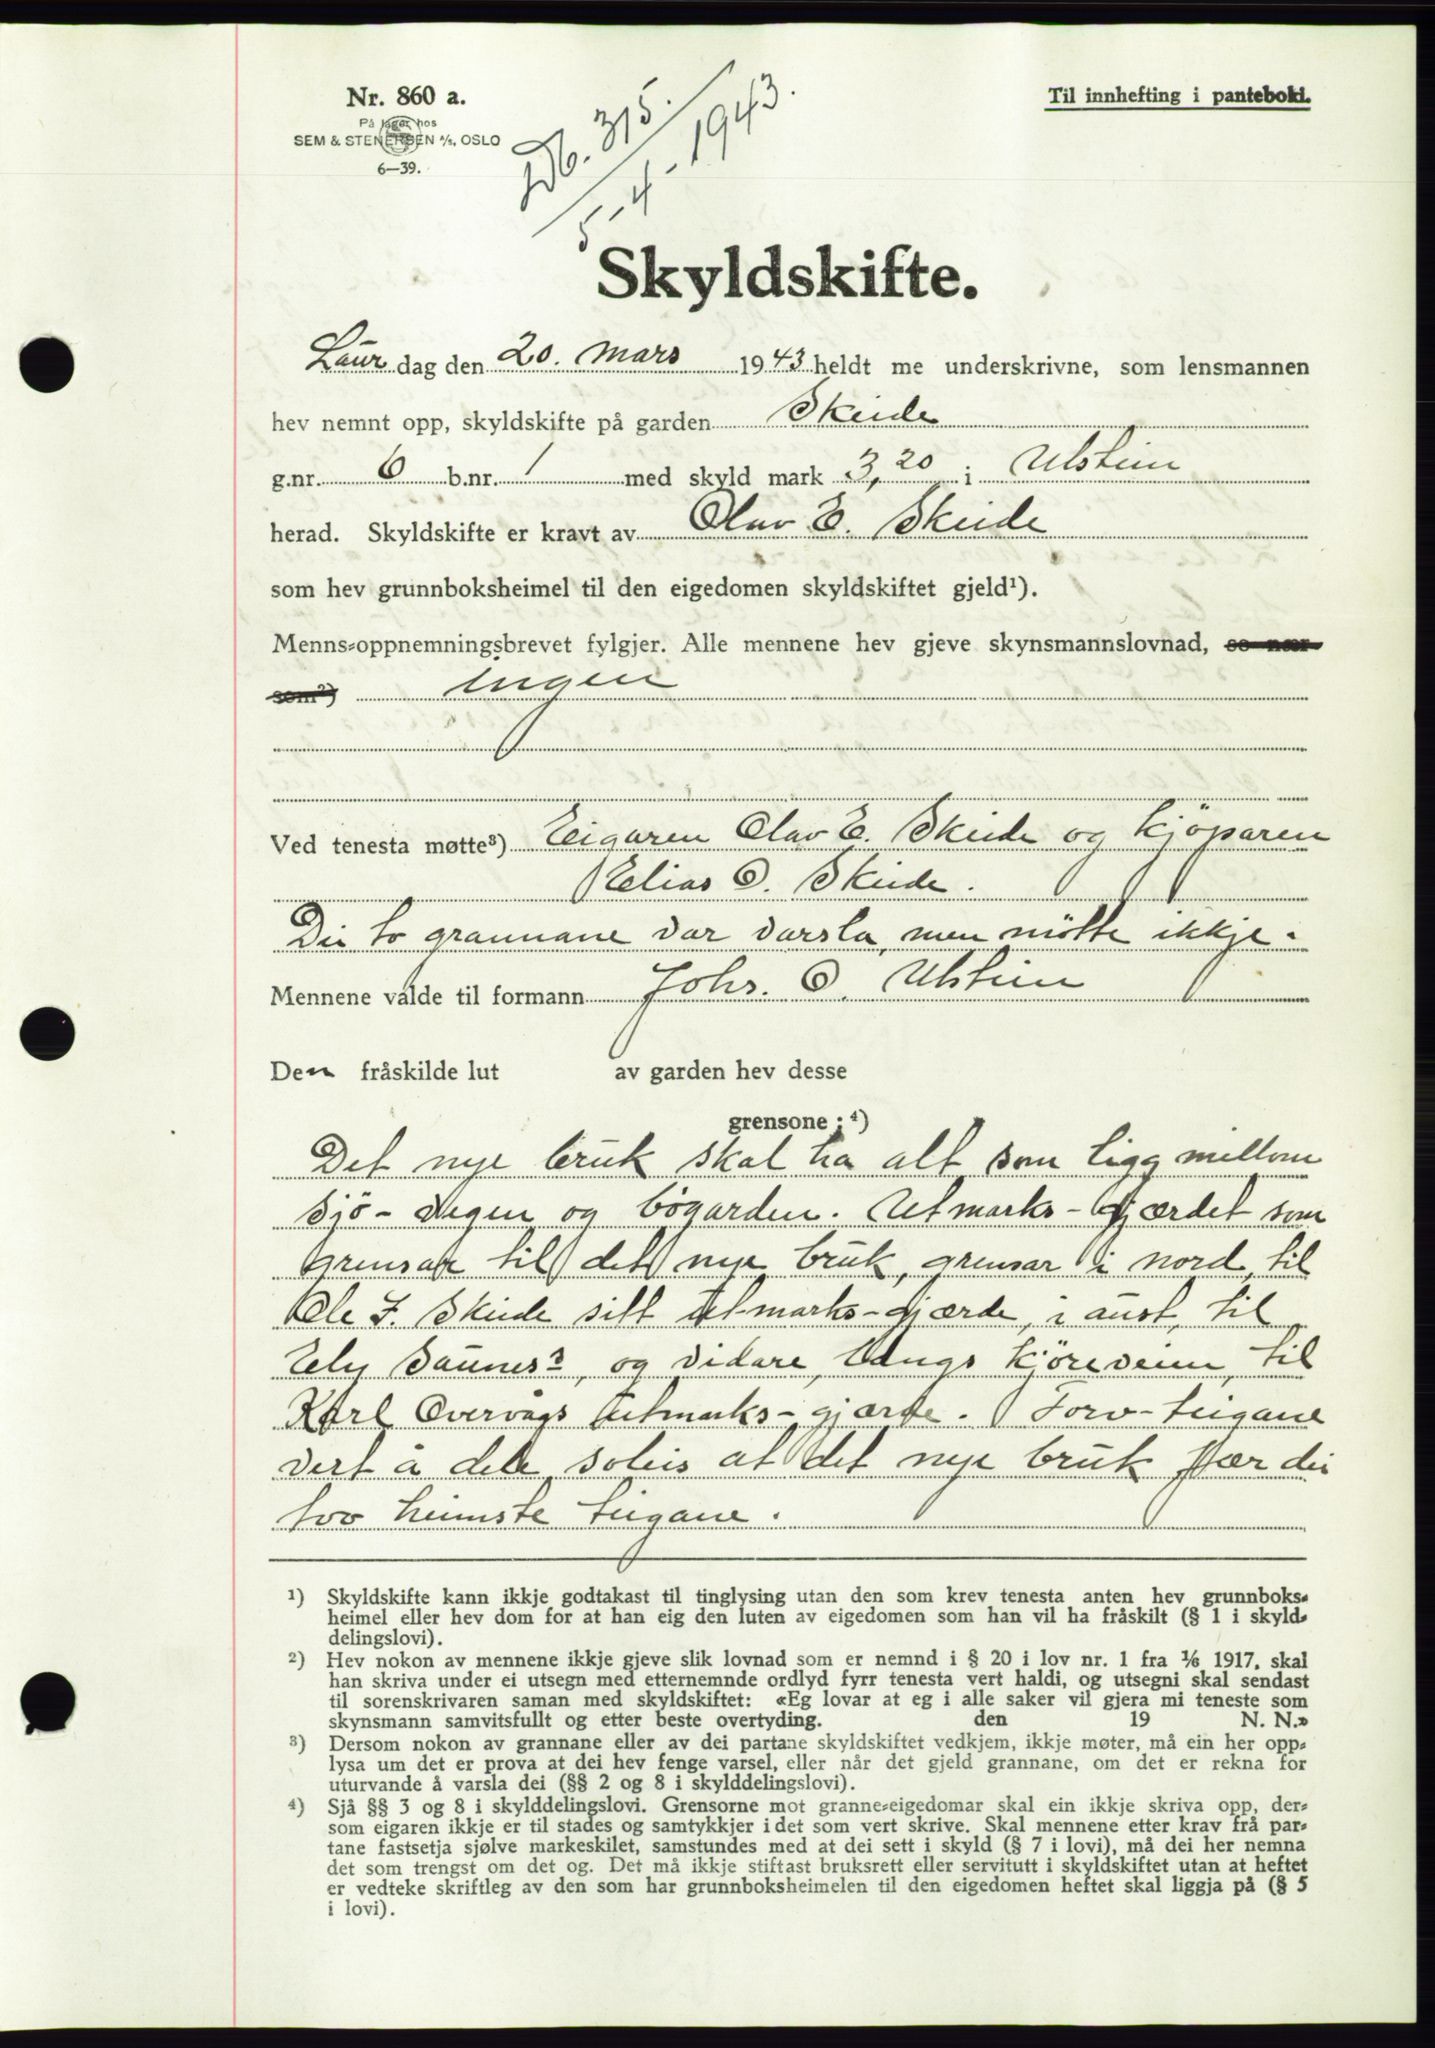 Nr. 860 a.
På lager hos
SEM & STENERSEN A/S, OSLO
6—39.
Db. 315.
5-4-1943.
Til innhefting i panteboki.
Skyldskifte.
Laur dag den 20. mars 1943 heldt me underskrivne, som lensmannen
hev nemnt opp, skyldskifte på garden Skeide
g.nr. 6 b.nr. 1 med skyld mark 3,20 i Ulstein
herad. Skyldskifte er kravt av Olav E. Skeide
som hev grunnboksheimel til den eigedomen skyldskiftet gjeld¹).
Menns-oppnemningsbrevet fylgjer. Alle mennene hev gjeve skynsmannslovnad, so nær
som²) ingen
Ved tenesta møtte³) Eigaren Olav E. Skeide og kjöparen
Elias O. Skeide.
Dei to grannane var varsla, men mötte ikkje.
Mennene valde til formann Johs. O. Ulstein
Den fråskilde lut av garden hev desse
grensone: ⁴)
Det nye bruk skal ha alt som ligg millom
sjö-vegen og bögarden. Utmarks-gjærdet som
grensar til det nye bruk, grensar i nord, til
Ole J. Skeide sitt utmarks-gjærde, i aust, til
Ely Saunes, og vidare, langs kjöreveien, til
Karl Overvågs utmarks-gjærde. Torv-teigane
vert å dele soleis at det nye bruk fær dei
tvo heimste teigane.
1) Skyldskifte kann ikkje godtakast til tinglysing utan den som krev tenesta anten hev grunnboks-
heimel eller hev dom for at han eig den luten av eigedomen som han vil ha fråskilt (§ 1 i skyld-
delingslovi).
2) Hev nokon av mennene ikkje gjeve slik lovnad som er nemnd i § 20 i lov nr. 1 fra 1/6 1917, skal
han skriva under ei utsegn med etternemnde ordlyd fyrr tenesta vert haldi, og utsegni skal sendast
til sorenskrivaren saman med skyldskiftet: «Eg lovar at eg i alle saker vil gjera mi teneste som
skynsmann samvitsfullt og etter beste overtyding. den 19 N. N.»
3) Dersom nokon av grannane eller av dei partane skyldskiftet vedkjem, ikkje møter, må ein her opp-
lysa um det er prova at dei hev fenge varsel, eller når det gjeld grannane, om det er rekna for
uturvande å varsla dei (§§ 2 og 8 i skylddelingslovi).
4) Sjå §§ 3 og 8 i skylddelingslovi. Grensorne mot granne-eigedomar skal ein ikkje skriva opp, der-
som eigaren ikkje er til stades og samtykkjer i det som vert skrive. Skal mennene etter krav frå par-
tane fastsetja sjølve markeskilet, samstundes med at dei sett i skyld (§ 7 i lovi), må dei her nemna
det som trengst om det og. Det må ikkje stiftast bruksrett eller servitutt i skyldskiftet utan at heftet
er vedteke skriftleg av den som har grunnboksheimelen til den eigedomen heftet skal liggja på (§ 5
i lovi).